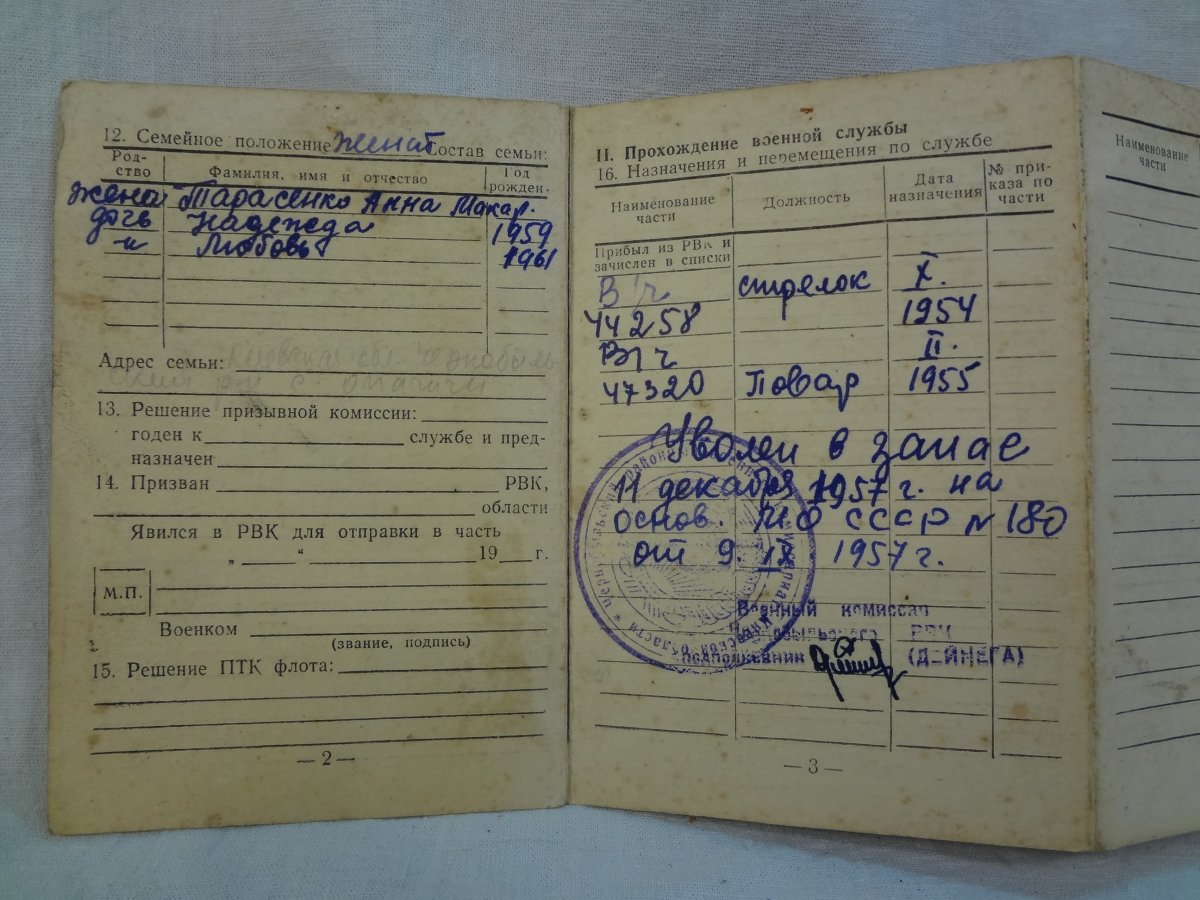 12. Семейное положение женат Состав семьи:
Род-
ство
Фамилия, имя и отчество
Год
рожден.
жена Тарасенко Анна Макар.
дочь Надежда 1959
–"– Любовь 1961
Адрес семьи: Киевская обл. Чернобыль
ский р-н с. Опачичи
13. Решение призывной комиссии:
годен к службе и пред-
назначен
14. Призван РВК,
области
Явился в РВК для отправки в часть
„ “ 19 г.
М.П.
Военком
(звание, подпись)
15. Решение ПТК флота:
— 2 —
II. Прохождение военной службы
16. Назначения и перемещения по службе
Наименование
части
Должность
Дата
назначения
№ при-
каза по
части
Прибыл из РВК и
зачислен в списки
В/ч стрелок X.
44258 1954
В/ч II.
47320 Повар 1955
Уволен в запас
11 декабря 1957 г. на
основ. МО СССР № 180
от 9. IX 1957 г.
Военный комиссар
Чернобыльского РВК
подполковник (ДЕЙНЕГА)
— 3 —
Наименование
части